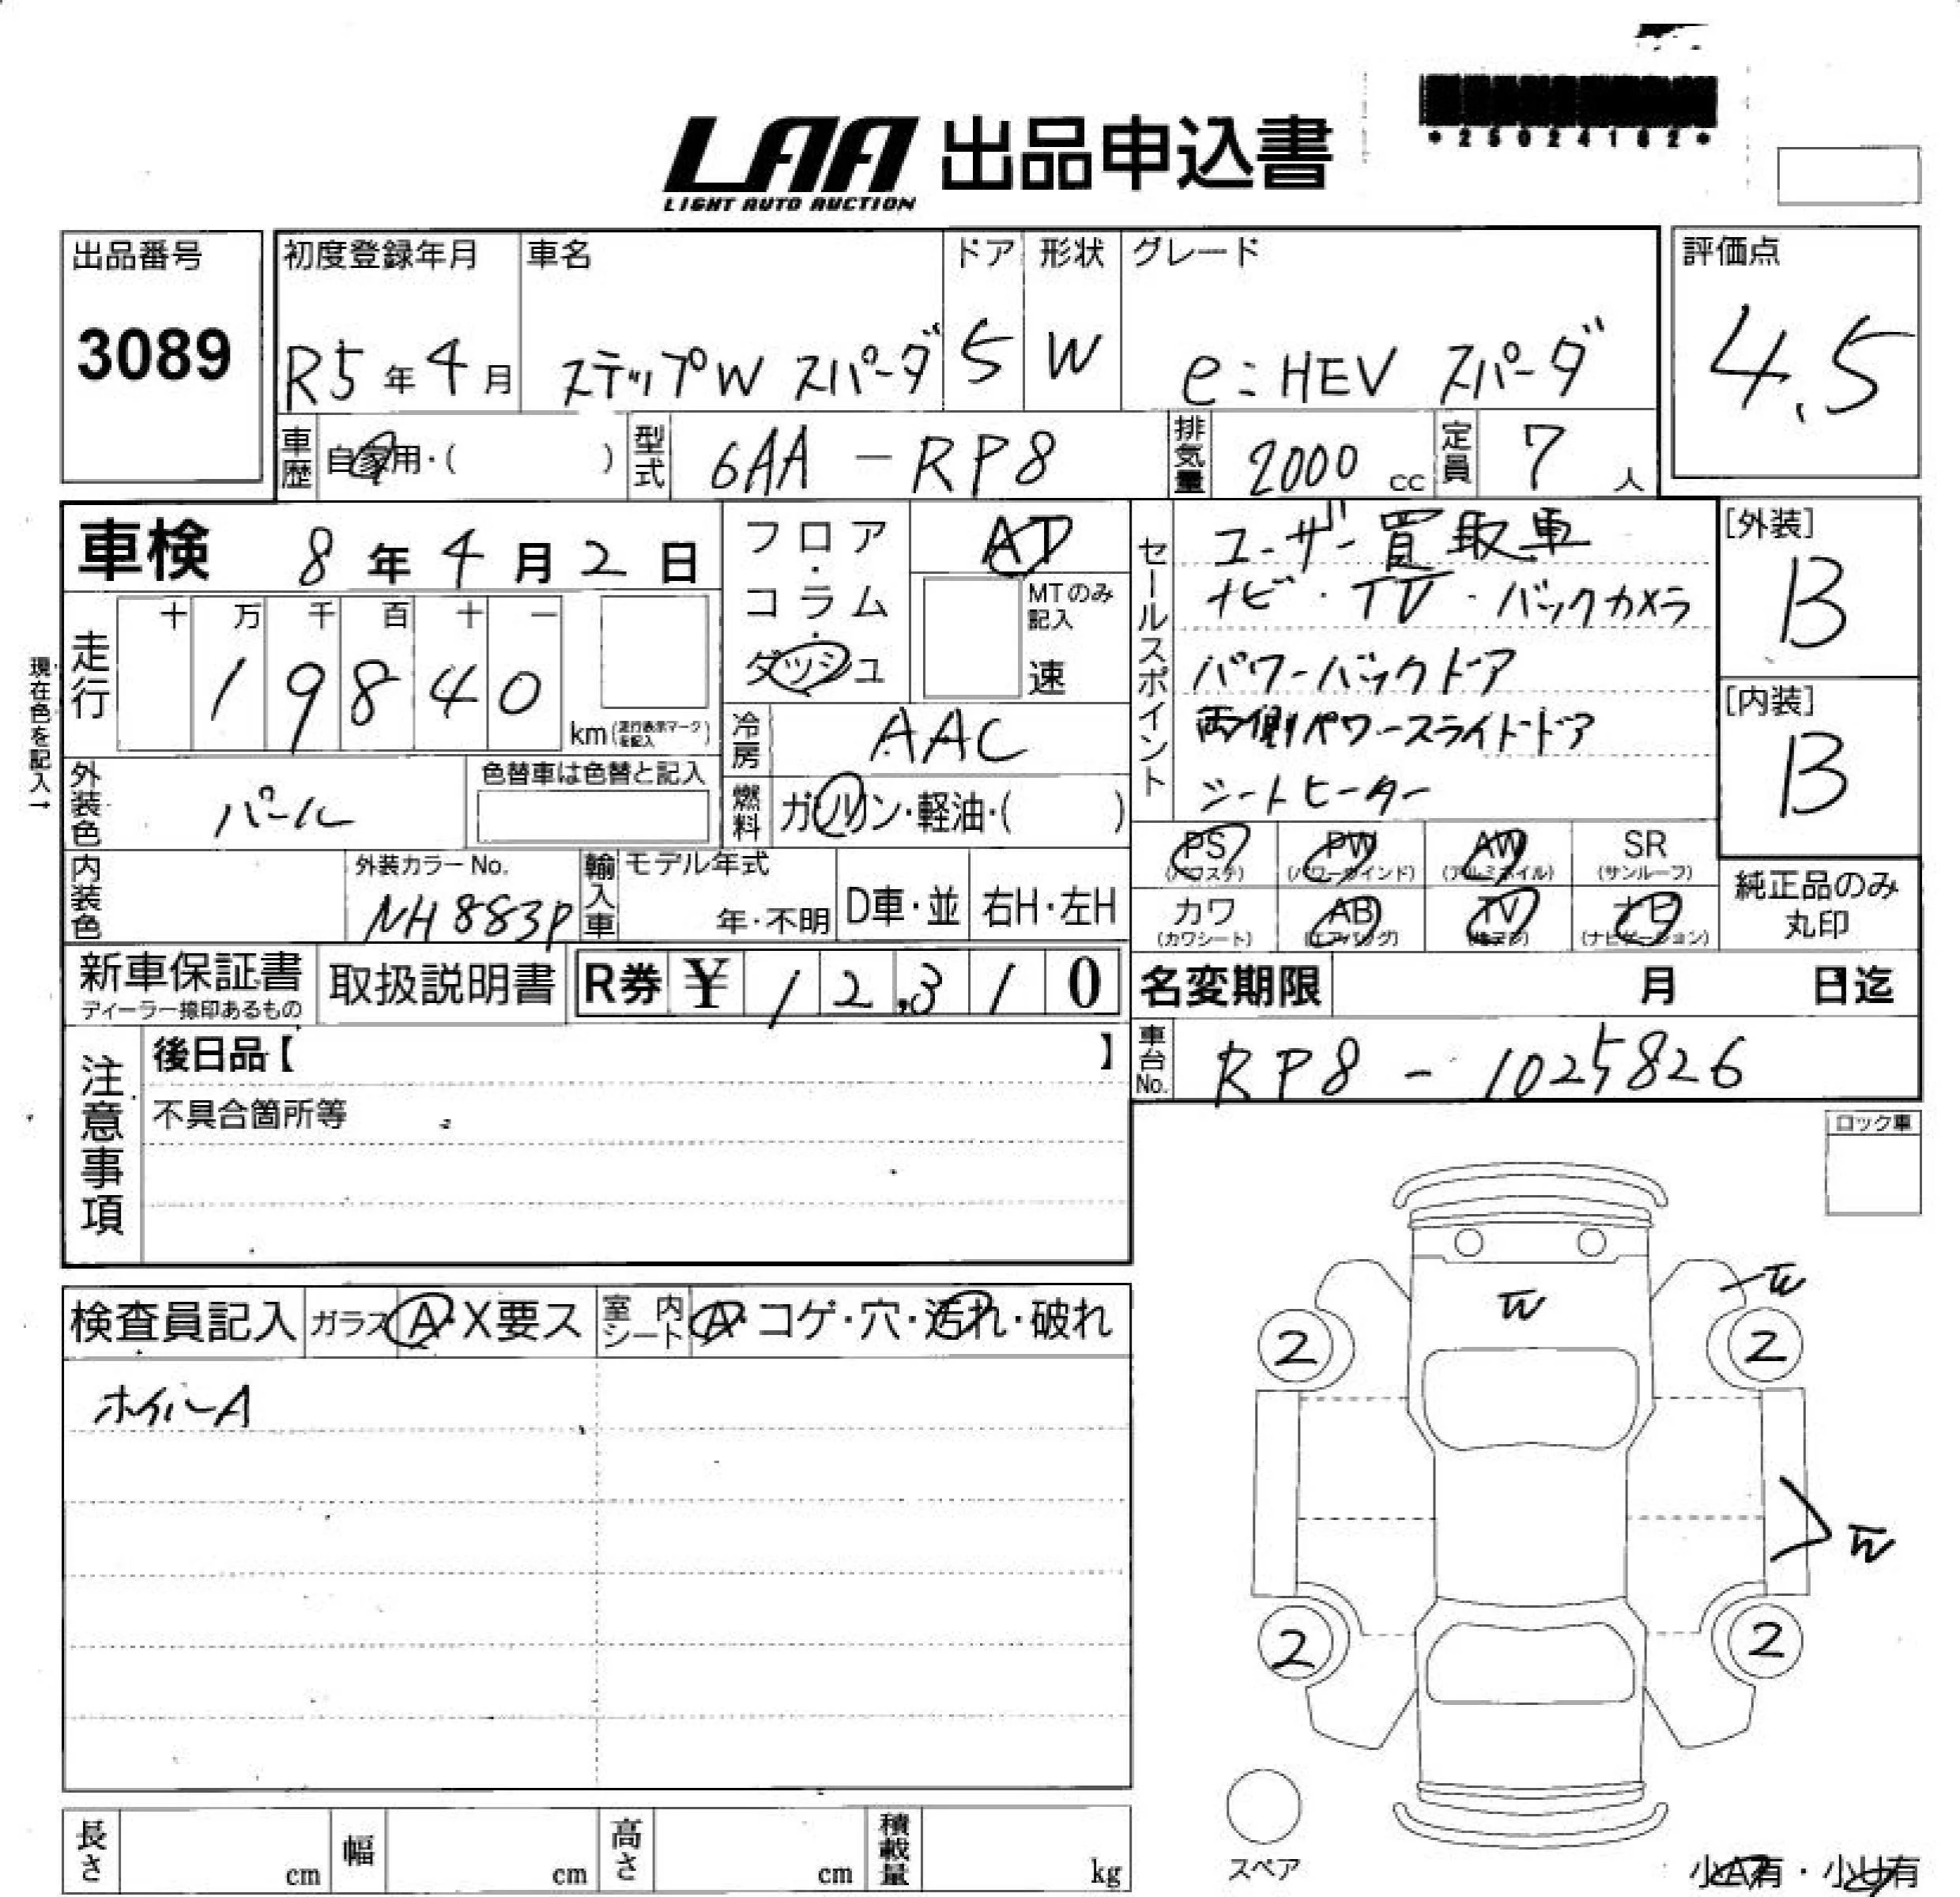 *25024182*
LAA 出品申込書
LIGHT AUTO AUCTION
出品番号
3089
初度登録年月
R5年4月
車名
ステップW スパーダ
ドア
5
形状
W
グレード
e:HEV スパーダ
評価点
4.5
車歴 自家用・( )
型式 6AA-RP8
排気量 2000 cc
定員 7 人
車検 8年4月2日
走行 十万千百十一
19840 km (走行表示マークを記入)
現在色を記入→
外装色 パール
色替車は色替と記入
内装色
外装カラーNo.
NH883P
フロア・コラム・ダッシュ
AT
MTのみ記入
速
冷房 AAC
燃料 ガソリン・軽油・( )
輸入車 モデル年式
年・不明 D車・並 右H・左H
セールスポイント
ユーザー買取車
ナビ・TV・バックカメラ
パワーバックドア
両側パワースライドドア
シートヒーター
[外装]
B
[内装]
B
PS (パワステ) PW (パワーウインド) AW (アルミホイル) SR (サンルーフ)
カワ (カワシート) AB (エアバッグ) TV (純正) ナビ (ナビゲーション)
純正品のみ丸印
新車保証書
ディーラー捺印あるもの
取扱説明書
R券 ¥ 12,310
名変期限 月 日迄
車台No. RP8-1025826
注意事項
後日品【 】
不具合箇所等
ロック車
検査員記入 ガラス A・X要ス 室内シート A・コゲ・穴・汚れ・破れ
ホイルA
2
2
2
2
スペア
長さ cm 幅 cm 高さ cm 積載量 kg
小A有・小U有